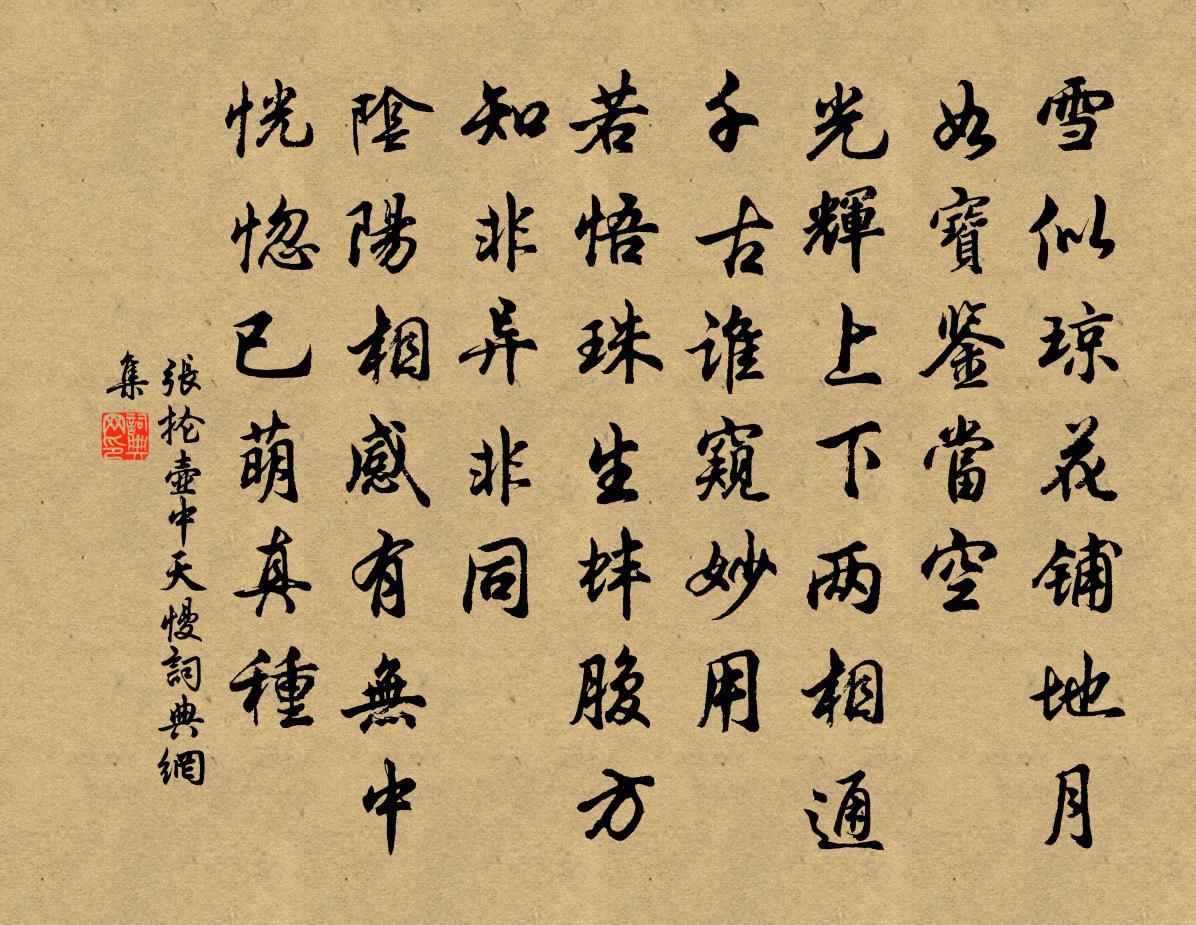 雪似琼花铺地月
如寶鉴當空
光輝上下两相通
千古谁窺妙用
若悟珠生蚌腹方
知非异非同
陰陽相感有無中
恍惚已萌真種
張抡壺中天慢詞典網
集
詞典網印